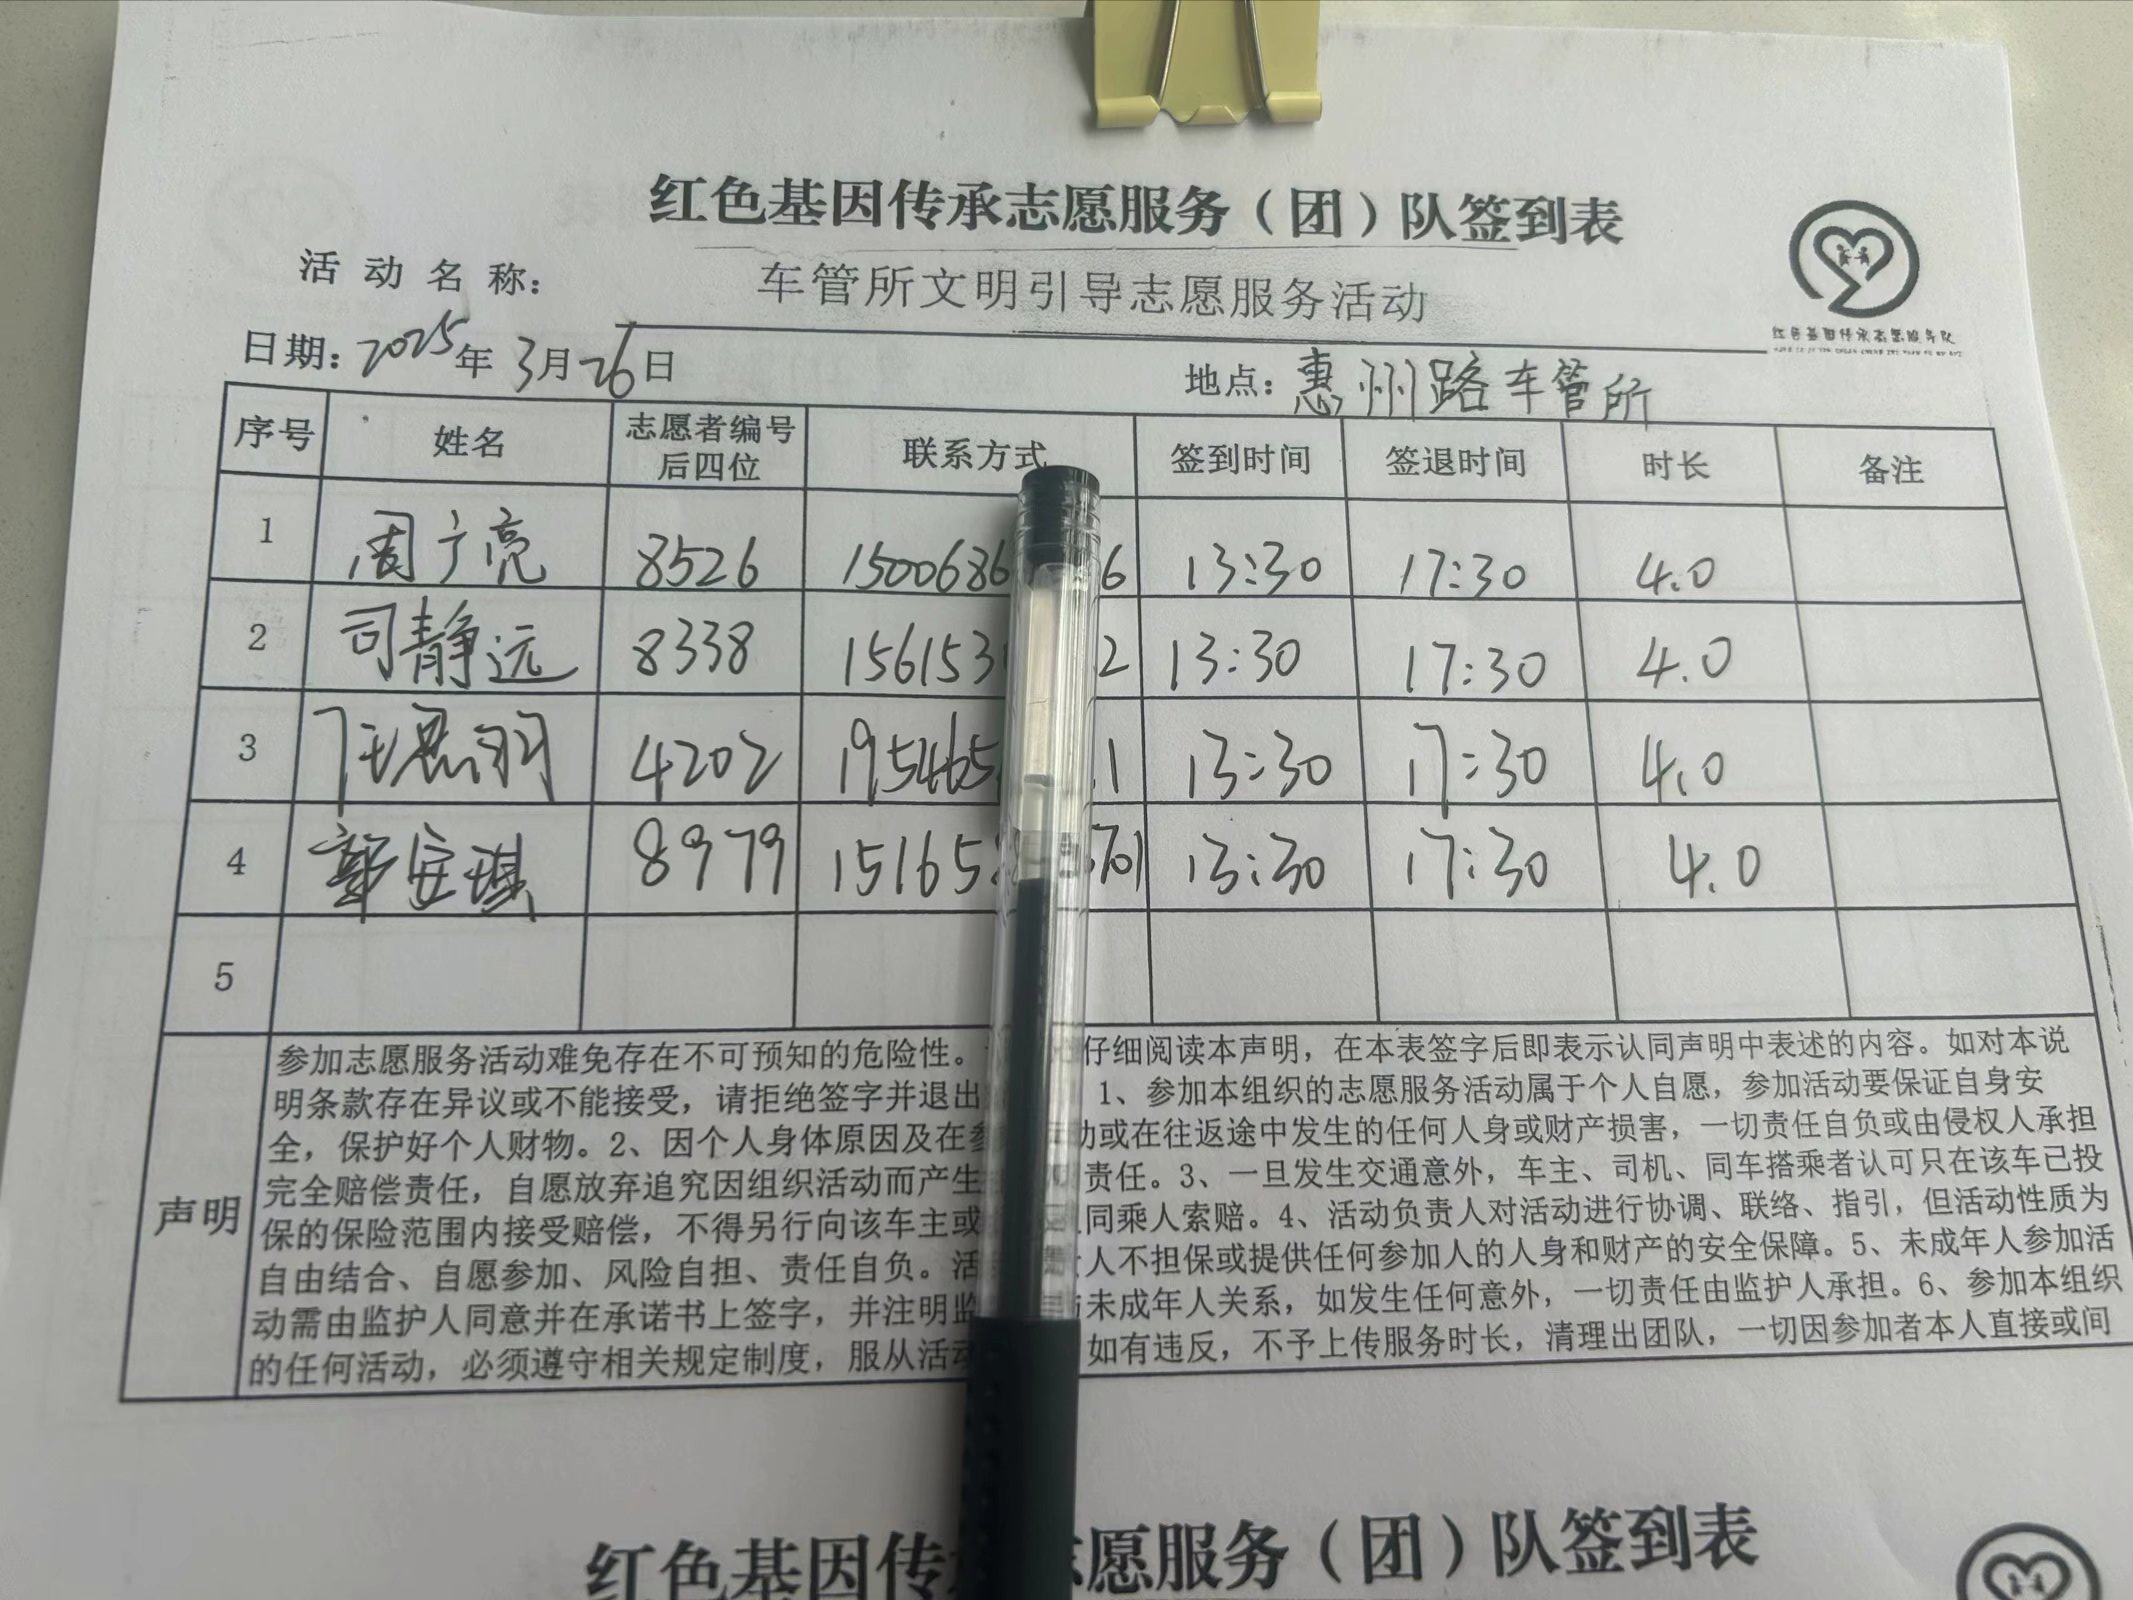 红色基因传承志愿服务（团）队签到表
活动名称： 车管所文明引导志愿服务活动
红色基因传承志愿服务队
日期：2025年3月26日 地点：惠州路车管所
序号 姓名 志愿者编号后四位 联系方式 签到时间 签退时间 时长 备注
1 周广亮 8526 1500686 6 13:30 17:30 4.0
2 司静远 8338 156153 2 13:30 17:30 4.0
3 任思羽 4202 195465 1 13:30 17:30 4.0
4 郭安琪 8979 15165 701 13:30 17:30 4.0
5
声明
参加志愿服务活动难免存在不可预知的危险性。 仔细阅读本声明，在本表签字后即表示认同声明中表述的内容。如对本说
明条款存在异议或不能接受，请拒绝签字并退出 1、参加本组织的志愿服务活动属于个人自愿，参加活动要保证自身安
全，保护好个人财物。2、因个人身体原因及在参 动或在往返途中发生的任何人身或财产损害，一切责任自负或由侵权人承担
完全赔偿责任，自愿放弃追究因组织活动而产生 责任。3、一旦发生交通意外，车主、司机、同车搭乘者认可只在该车已投
保的保险范围内接受赔偿，不得另行向该车主或 同乘人索赔。4、活动负责人对活动进行协调、联络、指引，但活动性质为
自由结合、自愿参加、风险自担、责任自负。活 人不担保或提供任何参加人的人身和财产的安全保障。5、未成年人参加活
动需由监护人同意并在承诺书上签字，并注明监 未成年人关系，如发生任何意外，一切责任由监护人承担。6、参加本组织
的任何活动，必须遵守相关规定制度，服从活动 如有违反，不予上传服务时长，清理出团队，一切因参加者本人直接或间
红色基因传 志愿服务（团）队签到表